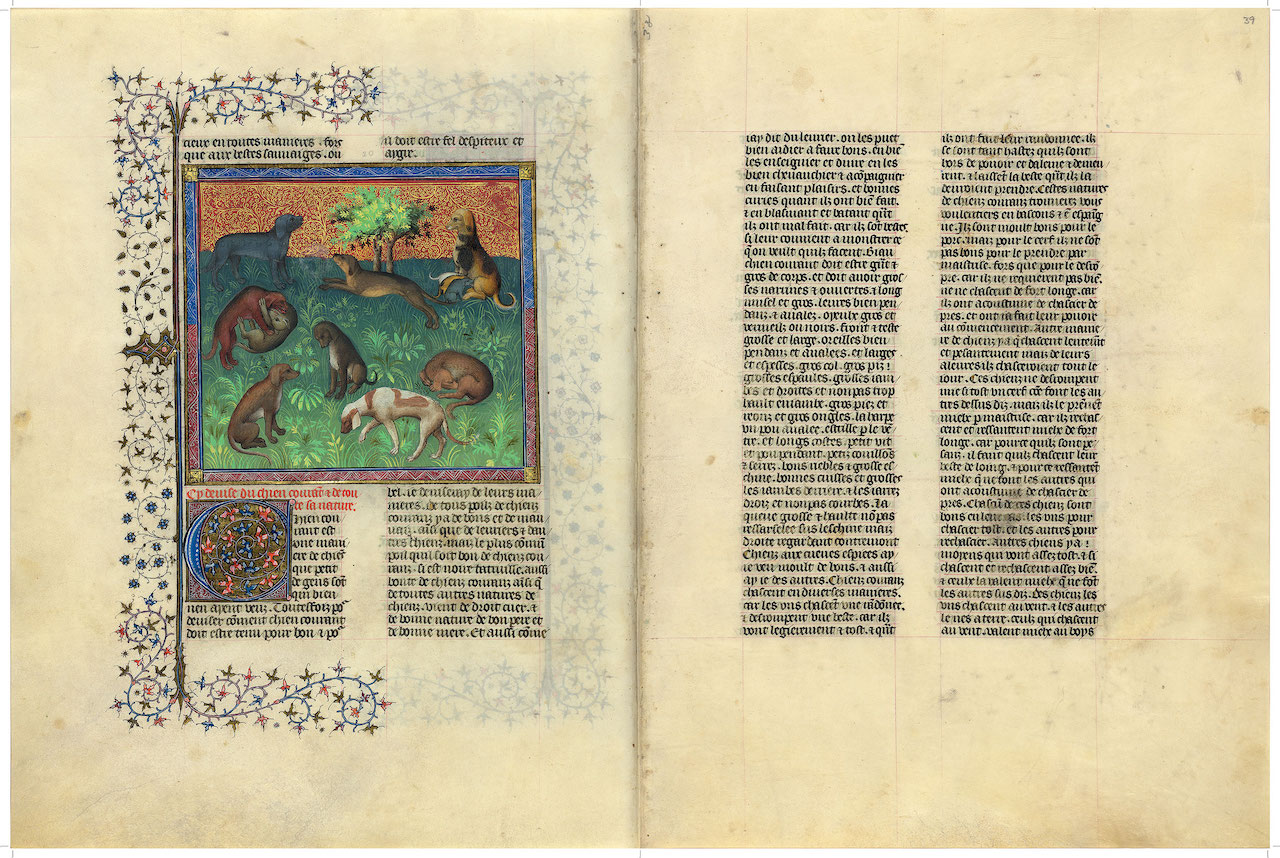 cieux en toutes manieres. fors
que aux bestes sauuaiges. ou
il doit estre fel despiteux et
aygre.
Cy deuise du chien courāt & de tou
te sa nature.
Chien cou
rant est
vne mani
ere de chiē
que petit
de gens sōt
qui bien
nen ayent veu. Toutesfoiz po
deuiser cōment chien courant
doit estre tenu pour bon & po
bel. ie deuiseray de leurs ma
nieres. De tous poilz de chiens
courans ya de bons et de mau
uaiz ainsi que de leuriers & dau
tres chiens. mais le plus cōmū
poil qui soit bon de chiens cou
rans. si est noir tatuille. aussi
bonte de chiens courans aīsi q̄
de toutes autres natures de
chiens. vient de droit cuer. &
de bonne nature de bon pere et
de bonne mere. Et aussi cōme
39
iay dit du leurier. on les puet
bien aidier a faire bons. en biē
les enseignier et duire en les
bien cheuauchier & acōpaignier
en faisant plaisirs. et bonnes
curies quant ilz ont biē fait.
& en blasmant et batant qūt
ilz ont mal fait. car ilz sōt bestes
si leur conuient a monstrer ce
q̄ on veult quilz facent. Bian
chien courant doit estre grāt &
gros de corps. et doit auoir gros
ses narines & ouuertes. & long
musel et gros. leures bien pen
danz. & aualez. oyeulx gros et
vermeilz ou noirs. front & teste
grosse et large. oreilles bien
pendanz et aualees. et larges
et espesses. gros col. gros piz &
grosses espaules. grosses iam
bes et droites et non pas trop
hault eniambe. gros piez et
reonz et gros ongles. la harpe
vn pou aualee. estille p le vē
tre. et longs costes. petit vit
et pou pendant. petiz couillos
& serrez. bons nebles & grosse es
chine. bonnes cuisses et grosses
les iambes derriere. & les iarrez
droiz et non pas courbes. La
queue grosse & hault nō pas
reuerselee sus leschine maiz
droite regardant contremont
Chiens aux cueues espiees ay
ie veu moult de bons. & aussi
ay ie des autres. Chiens courans
chascent en diuerses manieres.
car les vns chascēt vne rādōnee.
& descompent vne beste. car ilz
vont legierement & tost. & qūt
ilz ont fait leur randonnee. ilz
se sont tant hastez quilz sont
hors de pouoir et dalaine & demeu
rent. & laissēt la beste qūt ilz la
deuroient prendre. Cestes natures
de chiens courans trouuerez vous
voulentiers en bascons & ē espaig
ne. Ilz sont moult bons pour le
porc. mais pour le cerf ilz ne sōt
pas bons pour le prendre par
maistrise. fors que pour le descō
pre. car ilz ne requierent pas biē.
ne ne chascent de fort longe. car
ilz ont acoustume de chascier de
pres. et ont ia fait leur pouoir
au cōmencement. Autre manie
re de chiens ya q̄ chascent lentemēt
et pesantement maiz de leurs
aleures ilz chasceroient tout le
iour. Ces chiens ne descompent
mie si tost vn cerf cōē font les au
tres dessus diz. maiz ilz le prēnēt
mielx p maistrise. car ilz rechas
cent et ressantent mielx de fort
longe. car pource quilz sont pe
sanz. il faut quilz chascent leur
beste de loing. & pource ressantēt
mielx q̄ ne font les autres qui
ont acoustume de chascier de
pres. Chascū de ces chiens sont
bons en les vns pour
chascier tost. et les autres pour
rechascier. Autres chiens ya &
moyens qui vont assez tost. & si
chascent et rechascent assez biē.
& ceulx la valent mielx q̄ ne fōt
les autres sus diz. Des chiens les
vns chascent au vent. & les autres
le nes a terre. ceulx qui chascent
au vent. valent mielx au boys